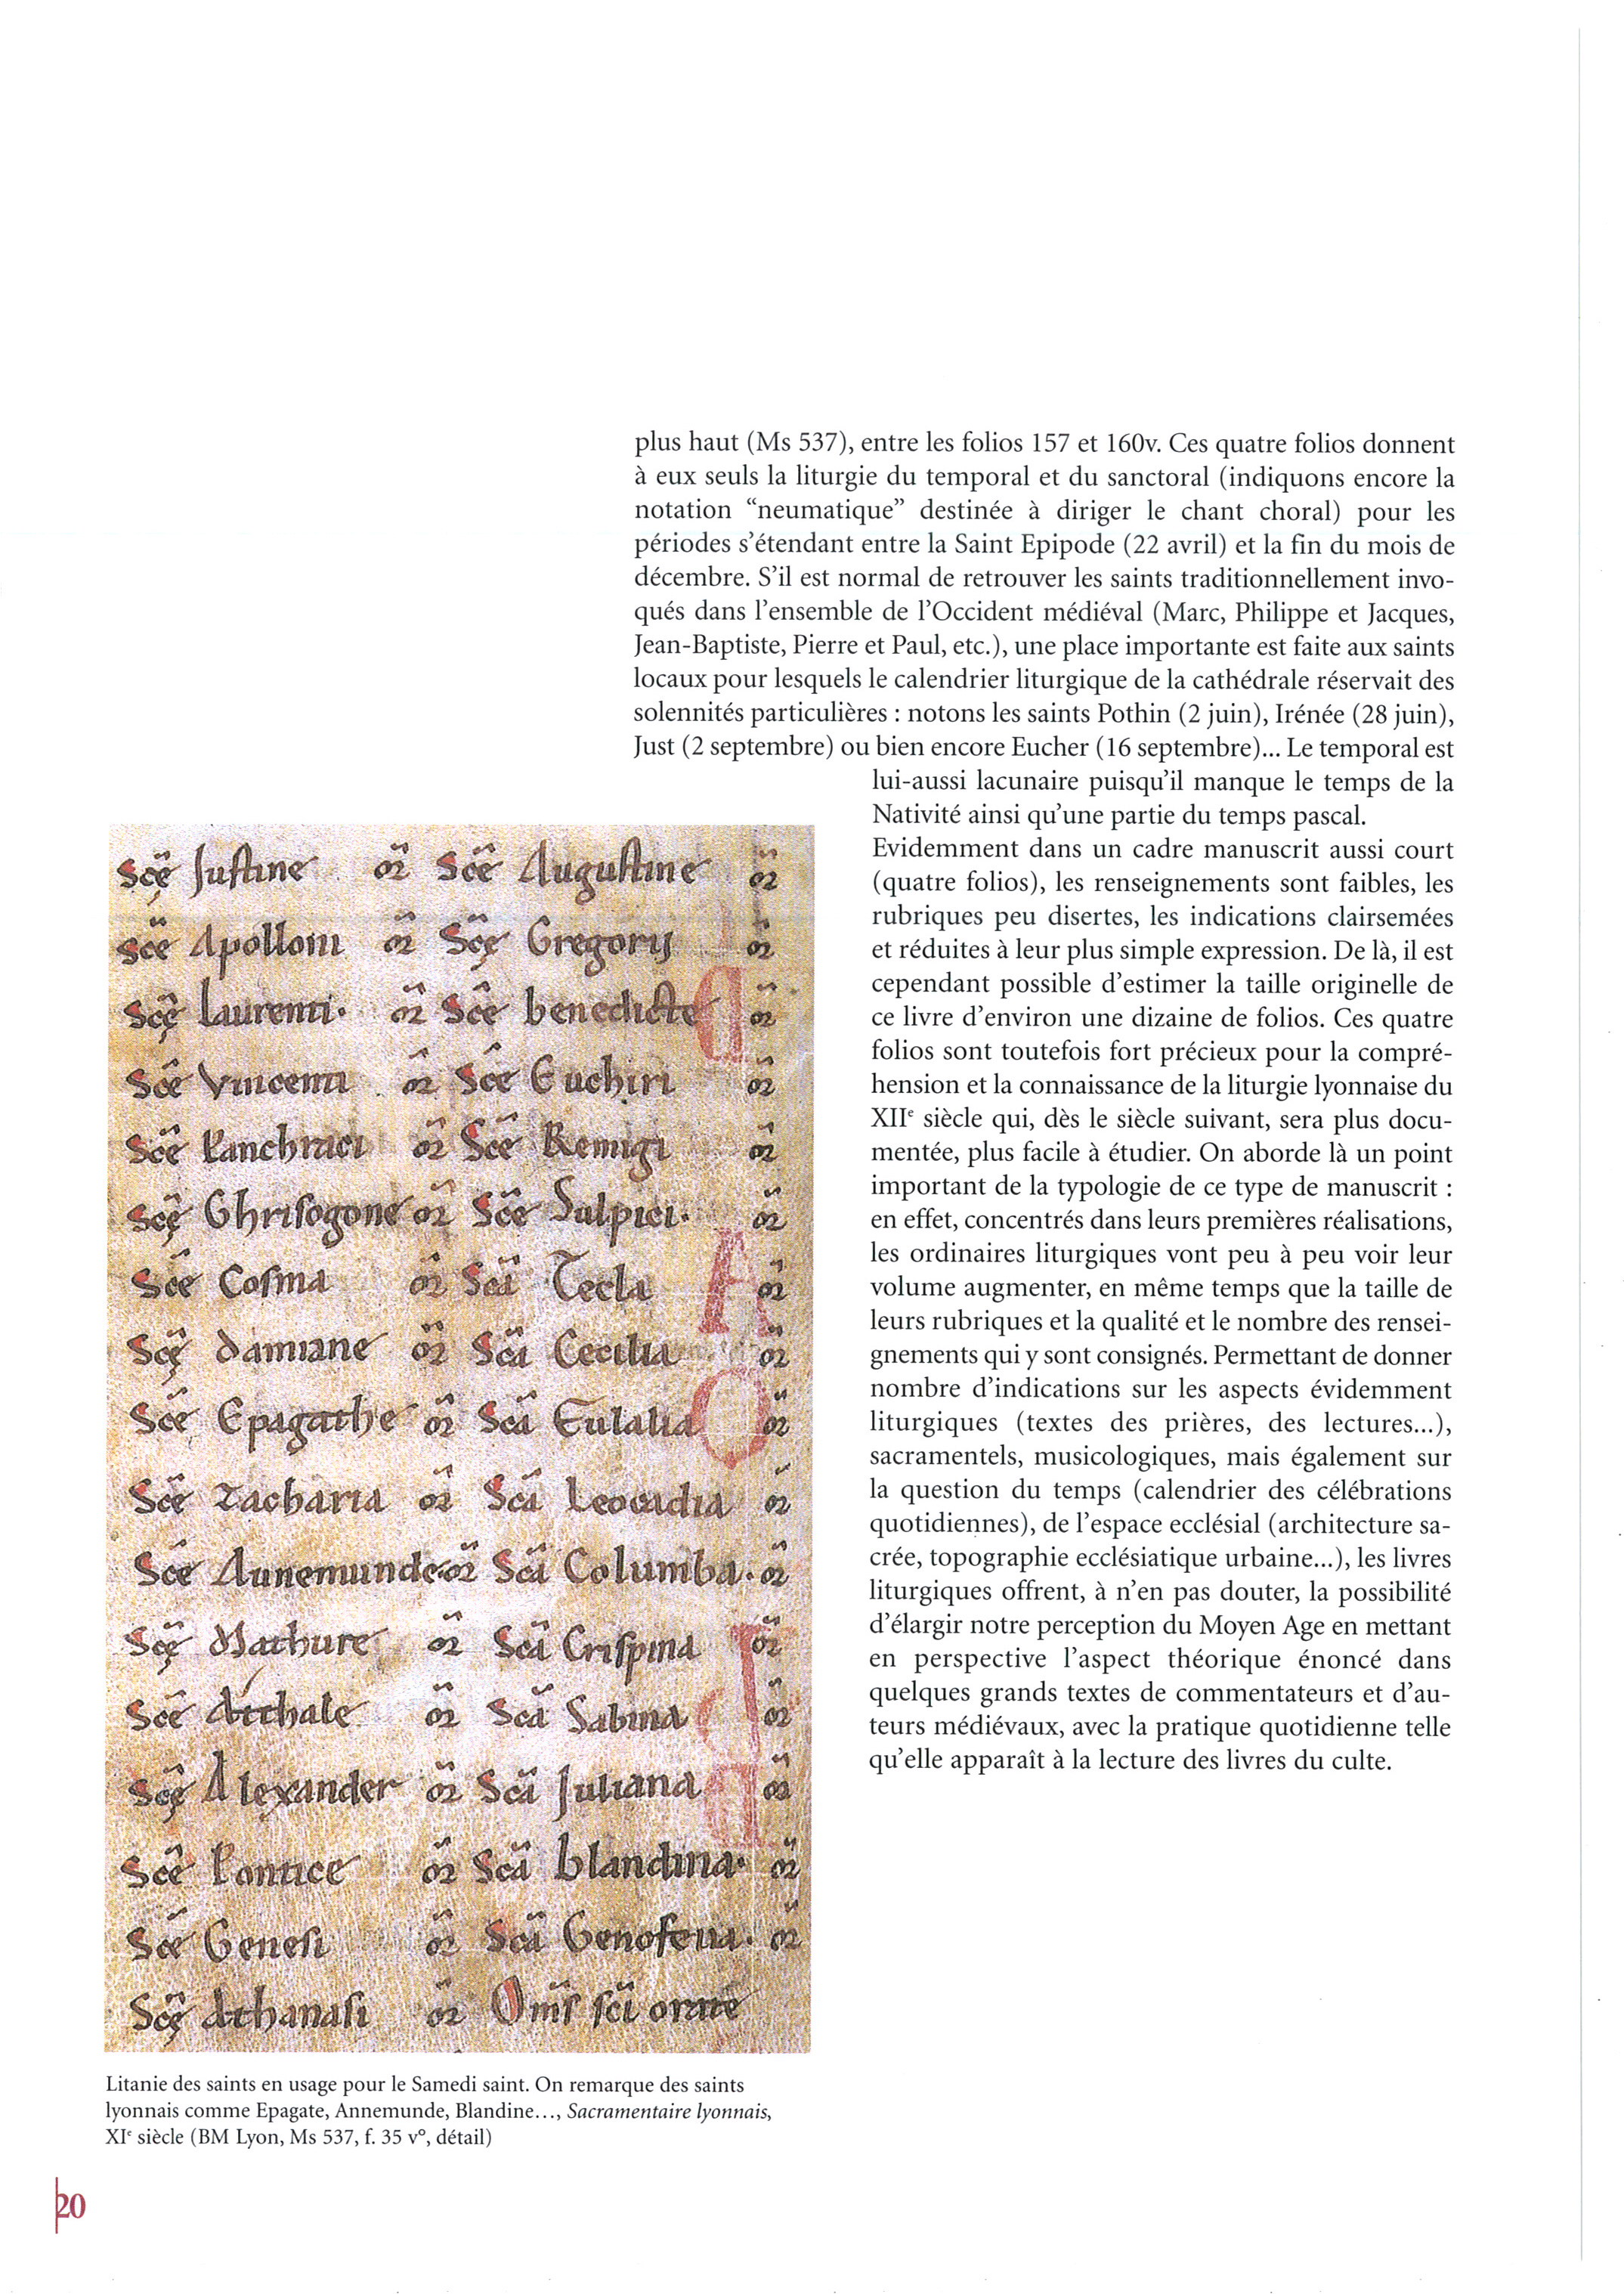 plus haut (Ms 537), entre les folios 157 et 160v. Ces quatre folios donnent
à eux seuls la liturgie du temporal et du sanctoral (indiquons encore la
notation “neumatique” destinée à diriger le chant choral) pour les
périodes s’étendant entre la Saint Epipode (22 avril) et la fin du mois de
décembre. S’il est normal de retrouver les saints traditionnellement invo-
qués dans l’ensemble de l’Occident médiéval (Marc, Philippe et Jacques,
Jean-Baptiste, Pierre et Paul, etc.), une place importante est faite aux saints
locaux pour lesquels le calendrier liturgique de la cathédrale réservait des
solennités particulières : notons les saints Pothin (2 juin), Irénée (28 juin),
Just (2 septembre) ou bien encore Eucher (16 septembre)... Le temporal est
lui-aussi lacunaire puisqu’il manque le temps de la
Nativité ainsi qu’une partie du temps pascal.
Evidemment dans un cadre manuscrit aussi court
(quatre folios), les renseignements sont faibles, les
rubriques peu disertes, les indications clairsemées
et réduites à leur plus simple expression. De là, il est
cependant possible d’estimer la taille originelle de
ce livre d’environ une dizaine de folios. Ces quatre
folios sont toutefois fort précieux pour la compré-
hension et la connaissance de la liturgie lyonnaise du
XIIe siècle qui, dès le siècle suivant, sera plus docu-
mentée, plus facile à étudier. On aborde là un point
important de la typologie de ce type de manuscrit :
en effet, concentrés dans leurs premières réalisations,
les ordinaires liturgiques vont peu à peu voir leur
volume augmenter, en même temps que la taille de
leurs rubriques et la qualité et le nombre des rensei-
gnements qui y sont consignés. Permettant de donner
nombre d’indications sur les aspects évidemment
liturgiques (textes des prières, des lectures...),
sacramentels, musicologiques, mais également sur
la question du temps (calendrier des célébrations
quotidiennes), de l’espace ecclésial (architecture sa-
crée, topographie ecclésiatique urbaine...), les livres
liturgiques offrent, à n’en pas douter, la possibilité
d’élargir notre perception du Moyen Age en mettant
en perspective l’aspect théorique énoncé dans
quelques grands textes de commentateurs et d’au-
teurs médiévaux, avec la pratique quotidienne telle
qu’elle apparaît à la lecture des livres du culte.
Sce Justine or Sce Augustine or
Sce Apolloni or Sce Gregorij or
Sce Laurenti. or Sce benedicte or
Sce Vincenti or Sce Euchiri or
Sce Panchraci or Sce Remigi or
Sce Chrisogone or Sce Sulpici. or
Sce Cosma or Sca Tecla or
Sce Damiane or Sca Cecilia or
Sce Epagathe or Sca Eulalia or
Sce Zacharia or Sca Leocadia or
Sce Aunemunde or Sca Columba. or
Sce Mathure or Sca Crispina or
Sce Atthale or Sca Sabina or
Sce Alexander or Sca Juliana or
Sce Pontice or Sca blandina. or
Sce Genesi or Sca Genofeua. or
Sce Athanasi or Oms sci orate
Litanie des saints en usage pour le Samedi saint. On remarque des saints
lyonnais comme Epagate, Annemunde, Blandine…, Sacramentaire lyonnais,
XIe siècle (BM Lyon, Ms 537, f. 35 v°, détail)
20